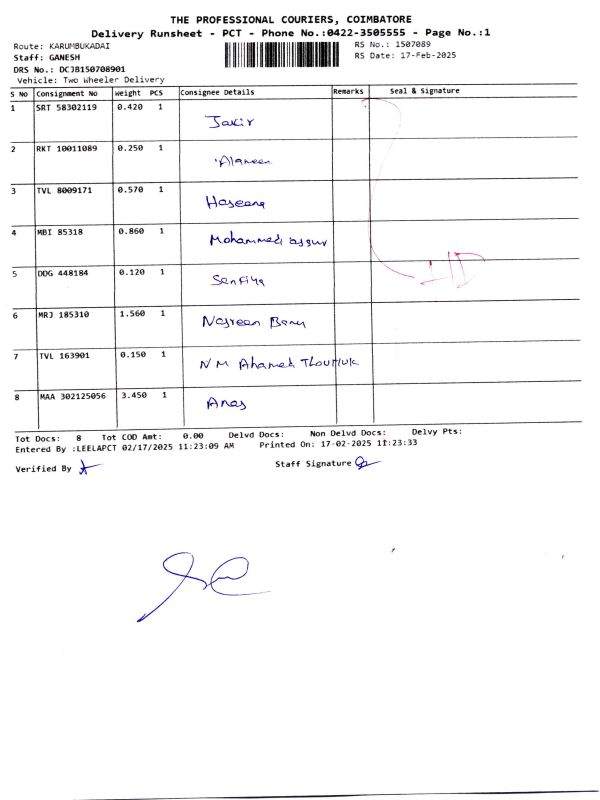 THE PROFESSIONAL COURIERS, COIMBATORE
Delivery Runsheet - PCT - Phone No.:0422-3505555 - Page No.:1
Route: KARUMBUKADAI
RS No.: 1507089
Staff: GANESH
RS Date: 17-Feb-2025
DRS No.: DCJB150708901
Vehicle: Two Wheeler Delivery
S No Consignment No Weight PCS Consignee Details Remarks Seal & Signature
1 SRT 58302119 0.420 1 Jakir
2 RKT 10011089 0.250 1 Alameen
3 TVL 8009171 0.570 1 Haseena
4 MBI 85318 0.860 1 Mohammed
5 DDG 448184 0.120 1
6 MRJ 185310 1.560 1 Nasreen Banu
7 TVL 163901 0.150 1 N M Ahamed
8 MAA 302125056 3.450 1 Anas
Tot Docs: 8 Tot COD Amt: 0.00 Delvd Docs: Non Delvd Docs: Delvy Pts:
Entered By :LEELAPCT 02/17/2025 11:23:09 AM Printed On: 17-02-2025 11:23:33
Verified By
Staff Signature